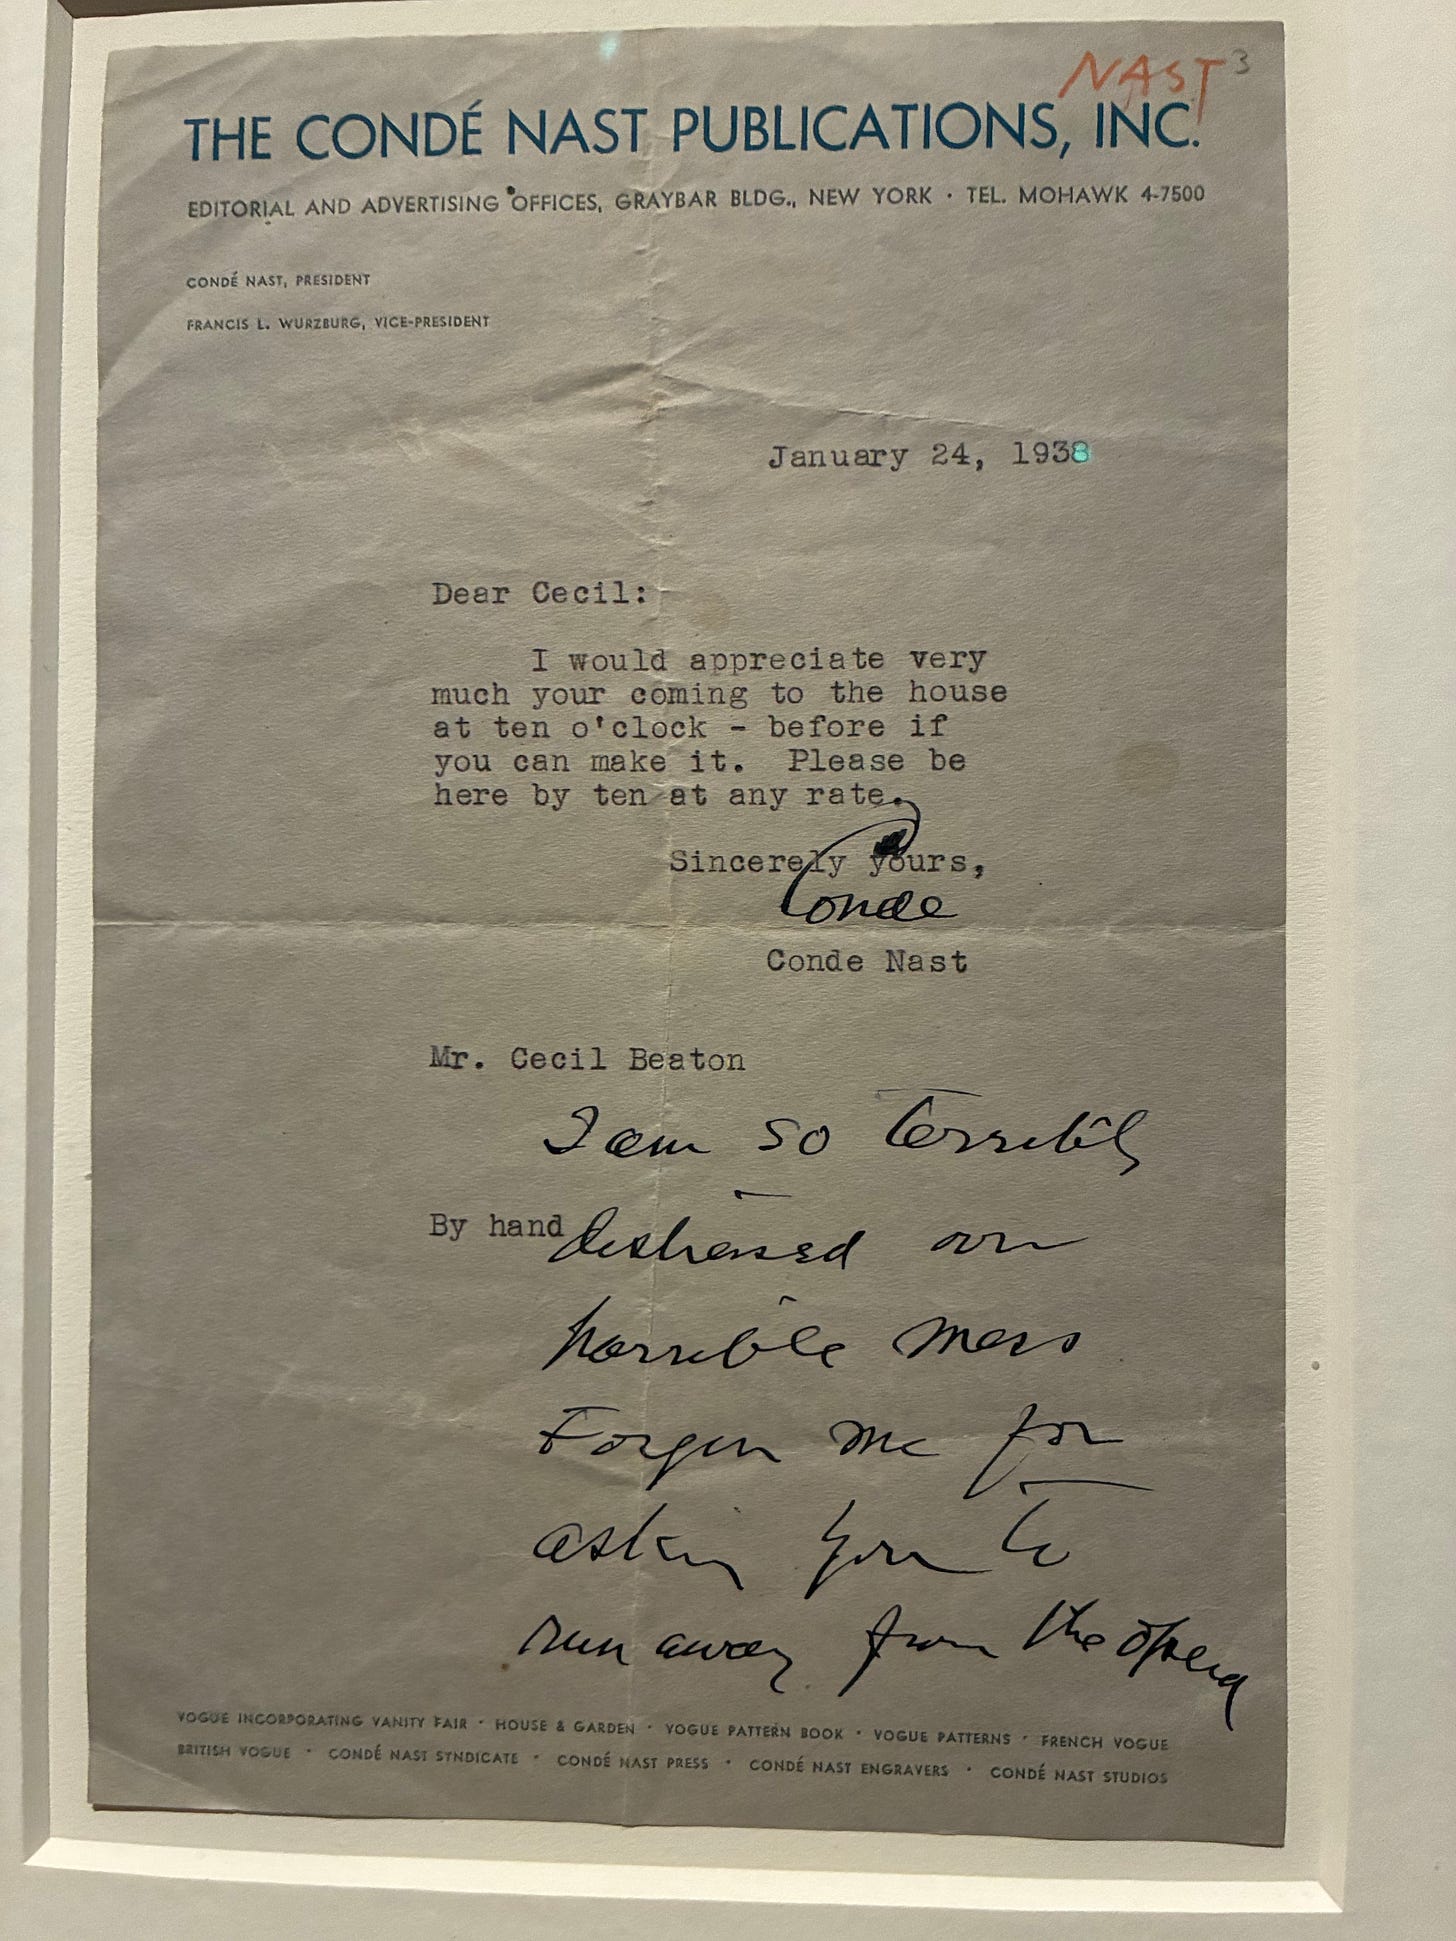 NAST 3
THE CONDÉ NAST PUBLICATIONS, INC.
EDITORIAL AND ADVERTISING OFFICES, GRAYBAR BLDG., NEW YORK · TEL. MOHAWK 4-7500
CONDÉ NAST, PRESIDENT
FRANCIS L. WURZBURG, VICE-PRESIDENT
January 24, 1938
Dear Cecil:
I would appreciate very
much your coming to the house
at ten o'clock - before if
you can make it. Please be
here by ten at any rate.
Sincerely yours,
Conde
Conde Nast
Mr. Cecil Beaton
I am so terribly
By hand distressed over
horrible mess
Forgive me for
asking you to
run away from the opera
VOGUE INCORPORATING VANITY FAIR · HOUSE & GARDEN · VOGUE PATTERN BOOK · VOGUE PATTERNS · FRENCH VOGUE
BRITISH VOGUE · CONDÉ NAST SYNDICATE · CONDÉ NAST PRESS · CONDÉ NAST ENGRAVERS · CONDÉ NAST STUDIOS